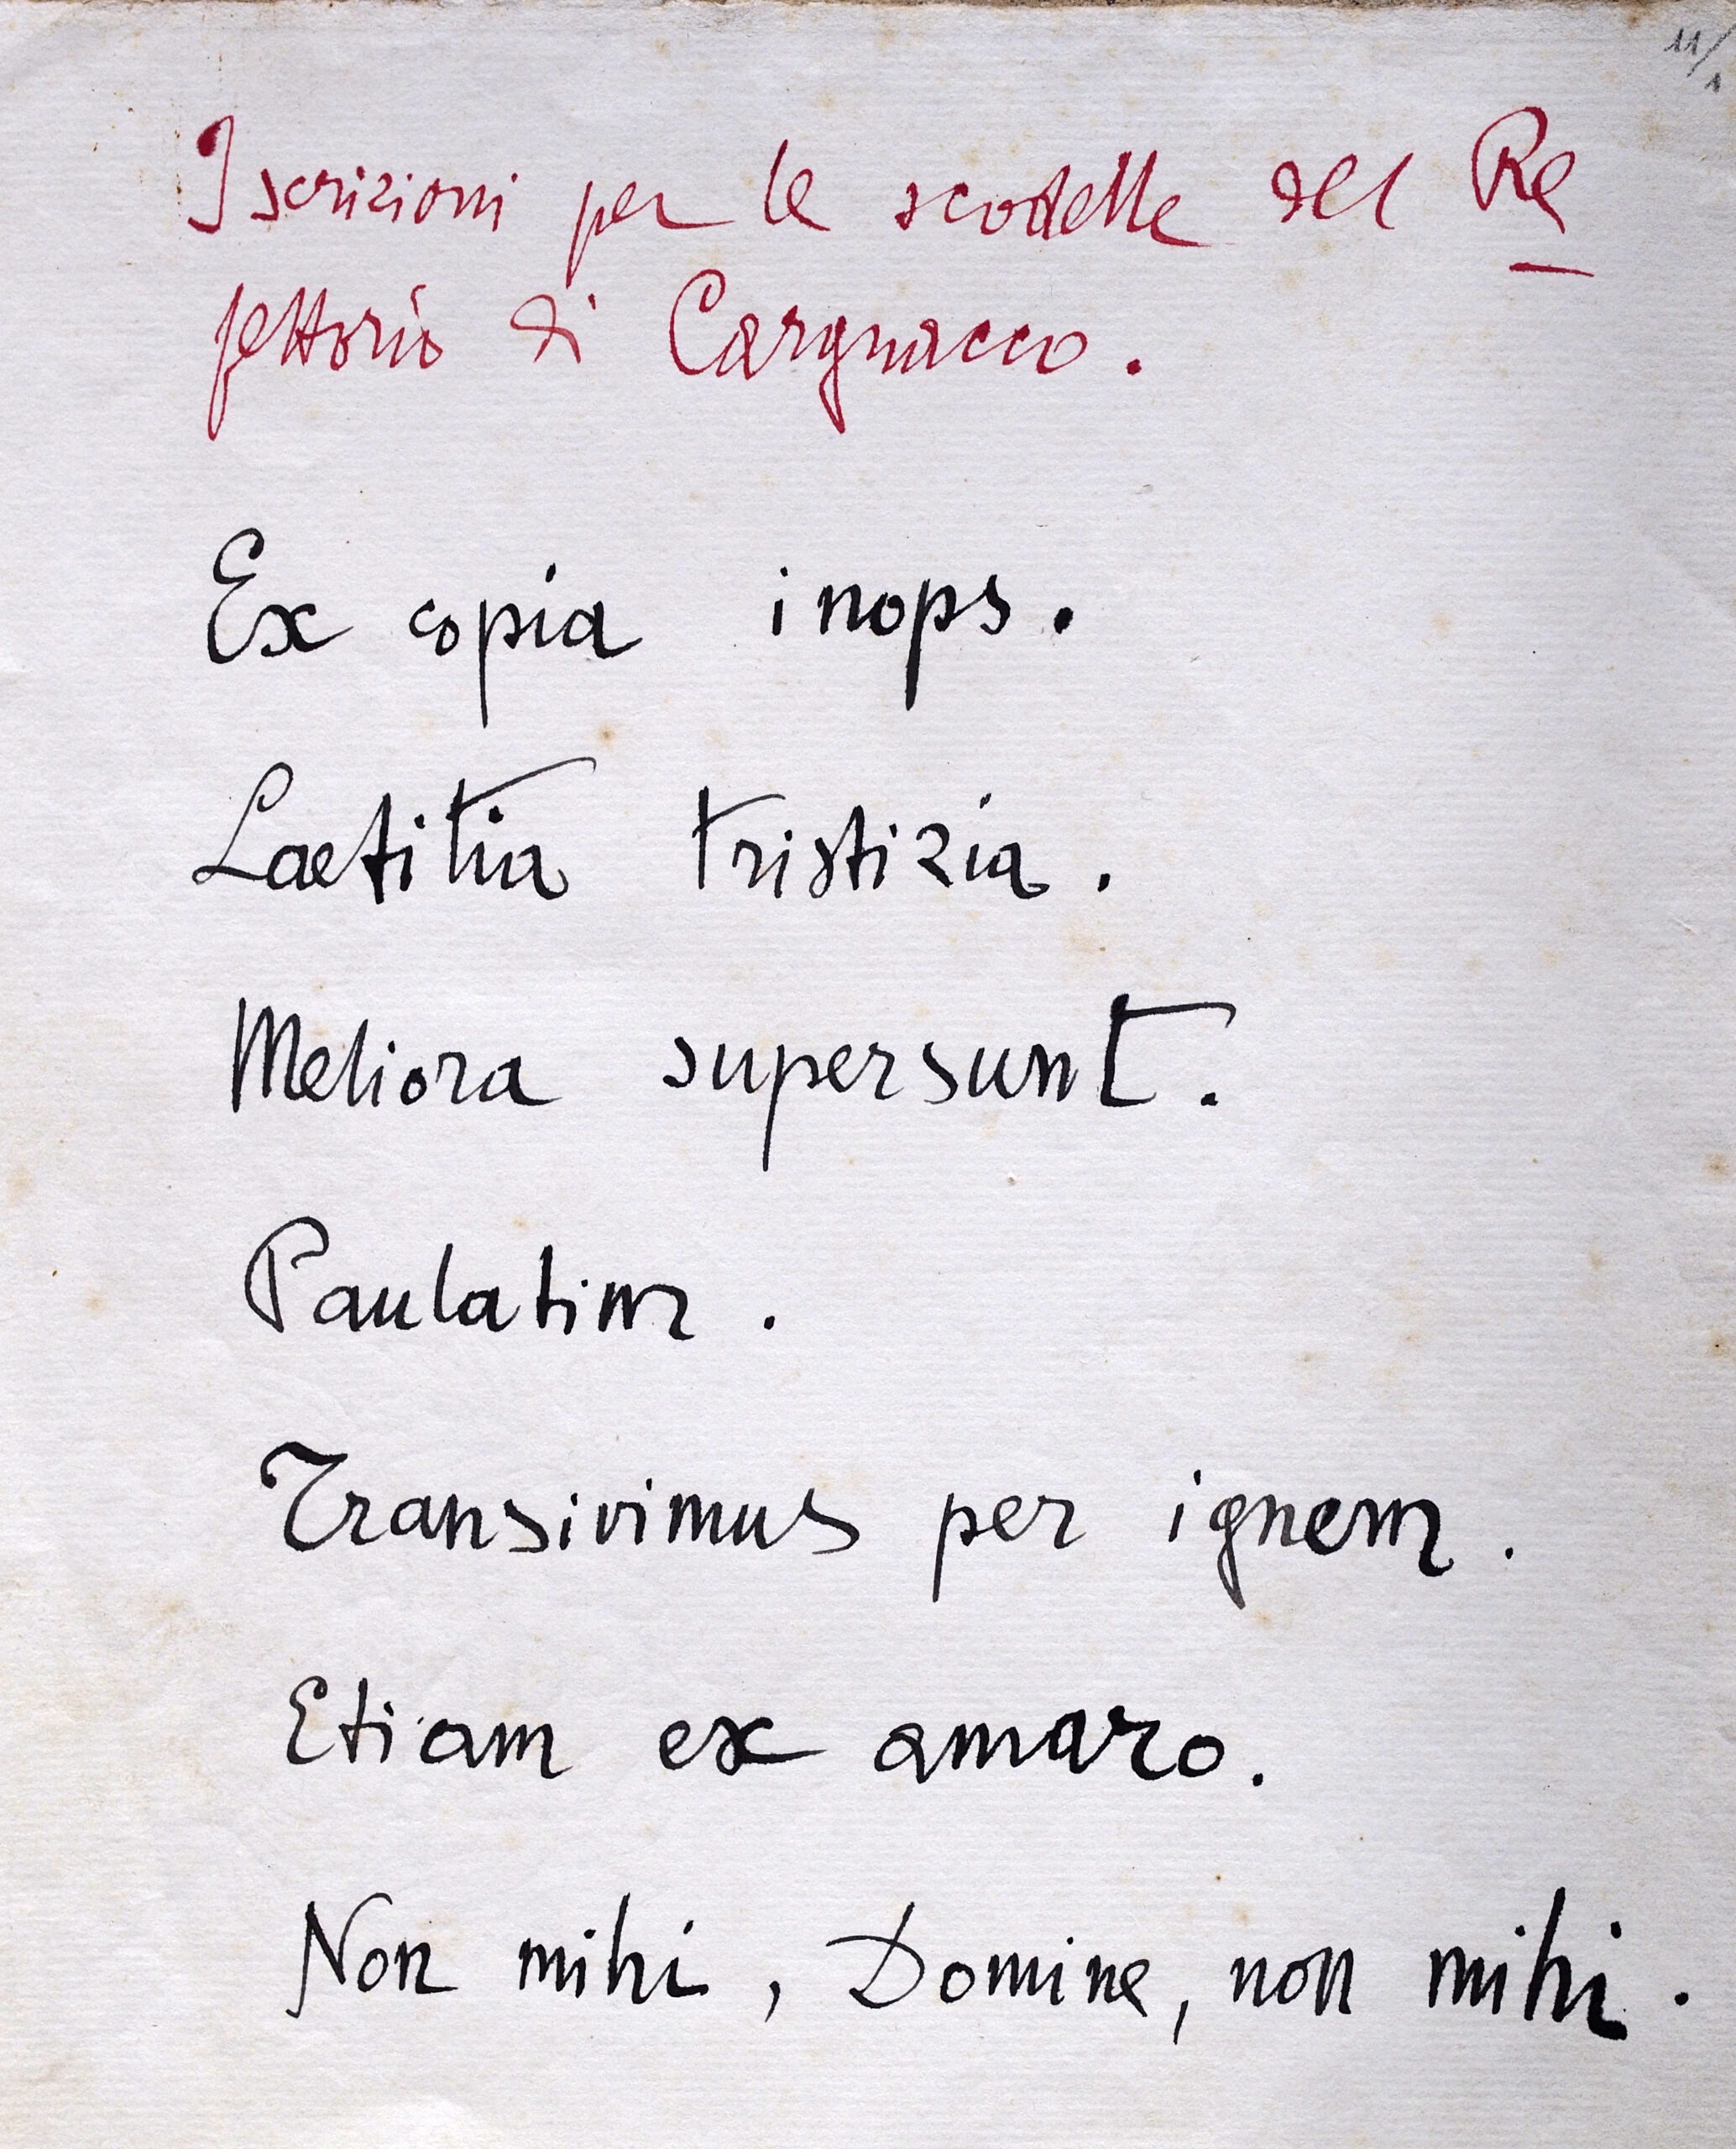 11/1
Iscrizioni per le scodelle del Re
fettorio di Cargnacco.
Ex copia inops.
Laetitia tristizia.
Meliora supersunt.
Paulatim.
Transivimus per ignem.
Etiam ex amaro.
Non mihi, Domine, non mihi.